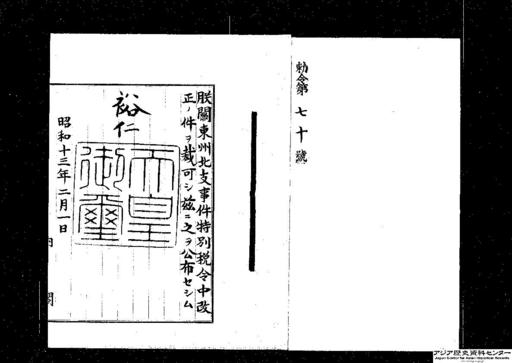 勅令第七十號
朕關東州北支事件特別税令中改
正ノ件ヲ裁可シ玆ニ之ヲ公布セシム
裕仁
天皇御璽
昭和十三年二月一日
アジア歴史資料センター
Japan Center for Asian Historical Records